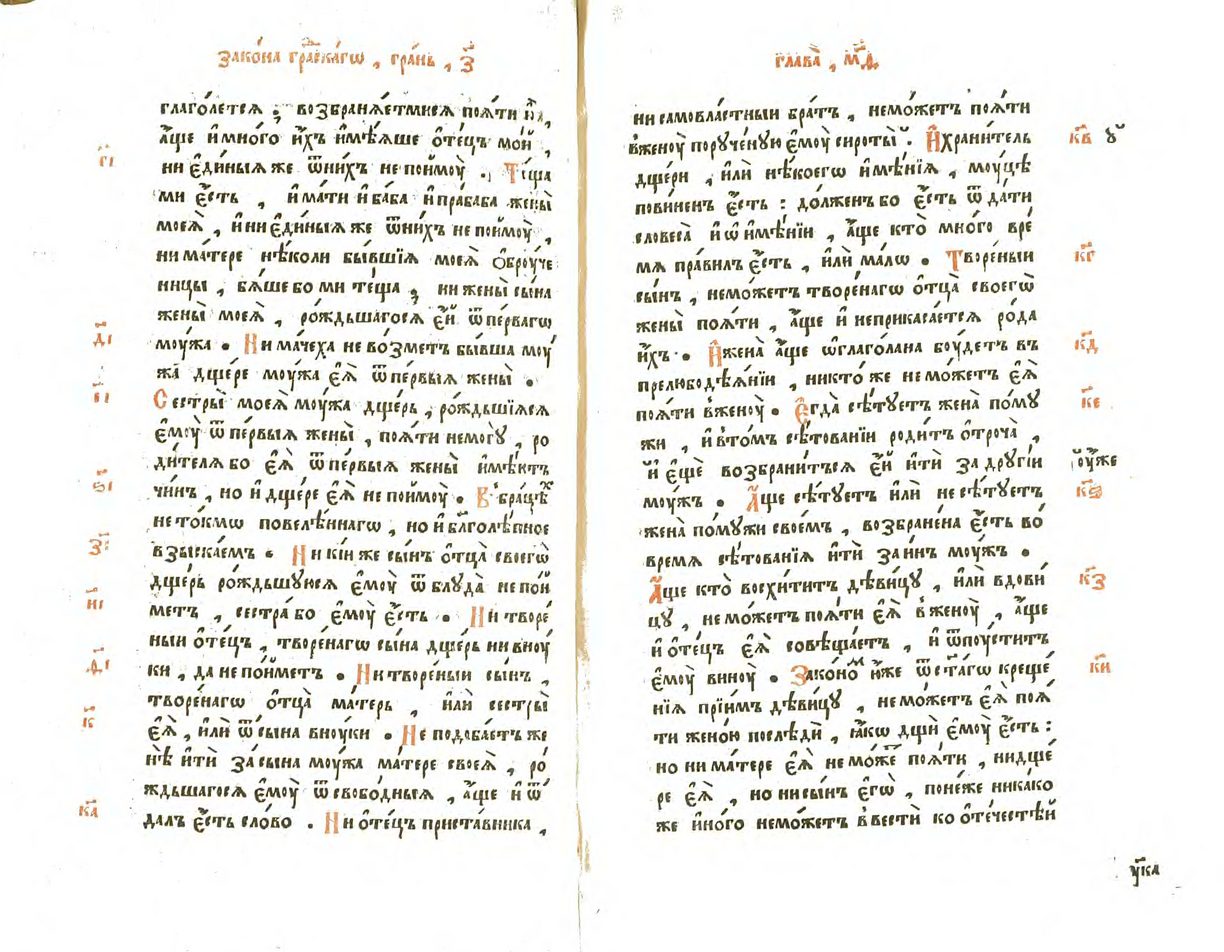 Зако́на гра́дскагѡ , гра́нь , з҃
глаго́летсѧ ; возбранѧ́етмисѧ поѧ́ти и҆̀ ,
а҆́ще и҆ мно́го и҆́хъ и҆мѣ́ѧше ѻ҆те́цъ мо́й ,
г҃і
ни є҆ди́ныѧ же ѿни́хъ не по́ймоу . Те́ща
ми є҆́сть , и҆ ма́ти и҆ ба́ба и҆ пра́баба жены̀
моеѧ̀ , и҆ ни є҆ди́ныѧ же ѿни́хъ не по́ймоу ,
ни ма́тере нѣ́коли бы́вшїѧ моеѧ̀ ѻ҆броу́че
ницы , бѧ́ше бо ми те́ща ; ни жены̀ сы́на
жены̀ моеѧ̀ , ро́ждьшагосѧ є҆́й ѿ пе́рвагѡ
д҃і
моу́жа . Ни ма́чеха не во́зметъ бы́вша моу́
жа̀ дще́ре моу́жа є҆ѧ̀ ѿ пе́рвыѧ жены̀ .
є҃і
Сестры̀ моеѧ̀ моу́жа дще́рь , ро́ждьшїѧсѧ
є҆моу̀ ѿ пе́рвыѧ жены̀ , поѧ́ти немогꙋ̀ , ро
ди́телѧ бо є҆ѧ̀ ѿ пе́рвыѧ жены̀ и҆мѣ́итъ
ѕ҃і
чи́нъ , но и҆ дще́ре є҆ѧ̀ не по́ймоу . В бра́цѣхъ
не то́кмѡ повелѣ́ннагѡ , но и҆ бл҃голѣ́пное
з҃і
взыска́емъ . Ни кі́и же сы́нъ ѻ҆тца̀ своегѡ̀
дще́рь ро́ждьшꙋюсѧ є҆моу̀ ѿ блꙋда̀ не пои́
и҃і
метъ , сестра́ бо є҆моу̀ є҆́сть . Ни творе́
ныи ѻ҆те́цъ , творе́нагѡ сы́на дще́рь ни вноу́
ѳ҃і
ки , да не по́йметъ . Ни творе́ныи сы́нъ ,
творе́нагѡ ѻ҆тца̀ ма́терь , и҆лѝ сестры̀
к҃
є҆ѧ̀ , и҆лѝ ѿ сы́на вноу́ки . Не подоба́етъ же
нѣ̀ и҆тѝ за́ сына моу́жа ма́тере своеѧ̀ , ро́
ждьшагосѧ є҆моу̀ ѿ свобо́дныѧ , а҆́ще и҆ ѿ
к҃а
да́лъ є҆́сть сло́во . Ни ѻ҆те́цъ приста́вника ,
глава̀ , м҃д
ни самовла́стныи бра́тъ , немо́жетъ поѧ́ти
к҃в
вженоу̀ порꙋче́ную є҆моу̀ сироты̀ . И҆ храни́тель
дще́ри , и҆лѝ нѣ́коегѡ и҆мѣ́нїѧ , моу́цѣ
пови́ненъ є҆́сть : до́лженъ бо є҆́сть ѿда́ти
словеса̀ и҆ ѡ҆ и҆мѣ́нїи , а҆́ще кто̀ мно́го вре́
к҃г
мѧ пра́вилъ є҆́сть , и҆лѝ ма́лѡ . Творе́ныи
сы́нъ , немо́жетъ творе́нагѡ ѻ҆тца̀ своегѡ̀
жены̀ поѧ́ти , а҆́ще и҆ неприкаса́етсѧ ро́да
к҃д
и҆́хъ . И҆ жена̀ а҆́ще ѡ҆глаго́лана боу́детъ въ
прелюбодѣѧ́нїи , никто́ же не мо́жетъ є҆ѧ̀
к҃е
поѧ́ти вженоу̀ . Є҆гда̀ сѣ́туетъ жена̀ по́мꙋ
жи , и҆ вто́мъ сѣ́тованїи роди́тъ ѻ҆троча̀ ,
и҆ є҆щѐ возбрани́тъсѧ є҆́й и҆тѝ за дрꙋгі́и
оу҆́же
к҃ѕ
моу́жъ . А҆́ще сѣ́туетъ и҆лѝ не сѣ́туетъ
жена̀ по́мꙋжи свое́мъ , возбране́на є҆́сть во́
время сѣ́тованїѧ и҆тѝ за и́нъ моу́жъ .
к҃з
А҆́ще кто̀ восхи́титъ дѣви́цꙋ , и҆лѝ вдови́
цꙋ , не мо́жетъ поѧ́ти є҆ѧ̀ вженоу̀ , а҆́ще
и҆ ѻ҆те́цъ є҆ѧ̀ совѣща́етъ , и҆ ѿпоу́ститъ
к҃и
є҆моу̀ виноу̀ . Зако́номъ и҆́же ѿ ст҃а́гѡ креще́
нїѧ прїи́мъ дѣви́цꙋ , не мо́жетъ є҆ѧ̀ поѧ́
ти жено́ю послѣдѝ , ꙗ҆́кѡ дщѝ є҆моу̀ є҆́сть :
но ни ма́тере є҆ѧ̀ не мо́же поѧ́ти , ни дще́
ре є҆ѧ̀ , но ни сы́нъ є҆гѡ̀ , поне́же ника́ко
же и҆но́го немо́жетъ ввестѝ ко ѻ҆те́честѣй
ꙋ҆ка